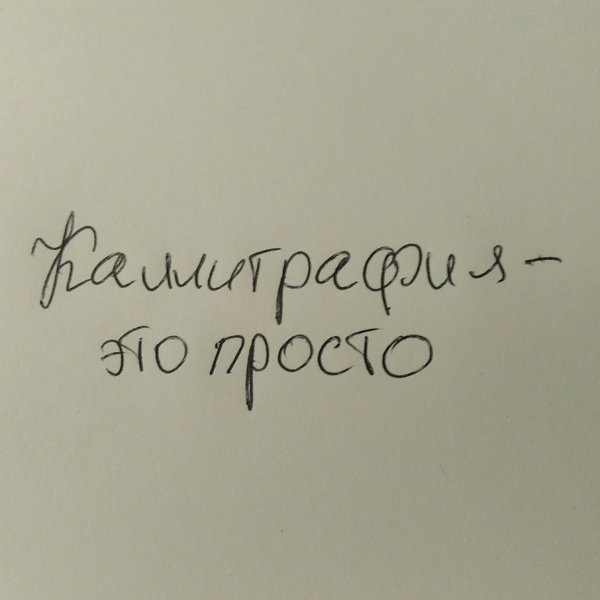 Каллиграфия -
это просто